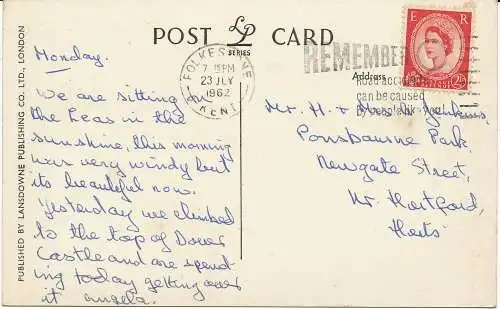 POST LP CARD
SERIES
PUBLISHED BY LANSDOWNE PUBLISHING CO. LTD., LONDON
Monday.
We are sitting on
the Leas in the
sunshine, this morning
was very windy but
its beautiful now.
Yesterday we climbed
to the top of Dover
Castle and are spend
ing today getting over
it Angela.
FOLKESTONE
7 15PM
23 JLY
1962
KENT
REMEMBER
Road accidents
can be caused
by
E R
2½D
Address
Mr. H & Mrs
Ponsbourne Park,
Newgate Street,
Nr. Hertford,
Herts.